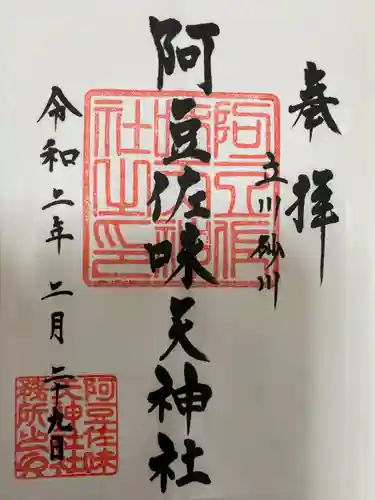 奉拝
立川砂川
阿豆佐味天神社
令和二年二月二十九日
阿豆佐
味天神
社之印
阿豆佐味
天神社社
務所之印